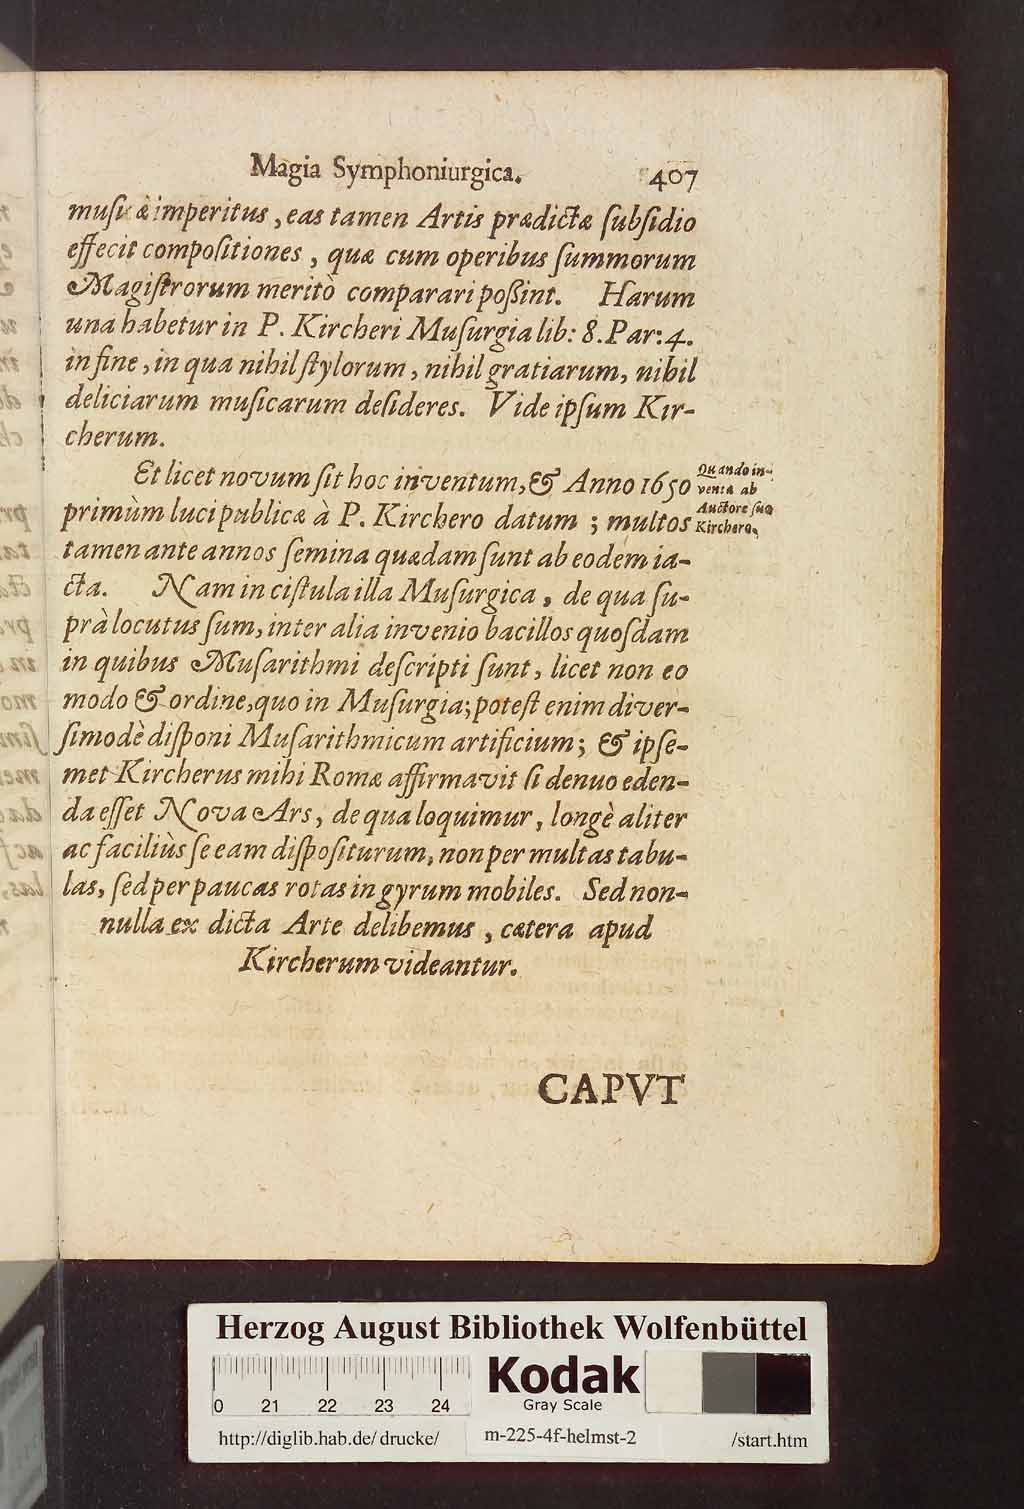 Magia Symphoniurgica. 407
musicæ imperitus, eas tamen Artis prædictæ subsidio
effecit compositiones, quæ cum operibus summorum
Magistrorum meritò comparari poßint. Harum
una habetur in P. Kircheri Musurgia lib: 8. Par: 4.
in fine, in qua nihil stylorum, nihil gratiarum, nihil
deliciarum musicarum desideres. Vide ipsum Kir-
cherum.
Et licet novum sit hoc inventum, & Anno 1650
primùm luci publicæ à P. Kirchero datum; multos
tamen ante annos semina quædam sunt ab eodem ia-
cta. Nam in cistula illa Musurgica, de qua su-
prà locutus sum, inter alia invenio bacillos quosdam
in quibus Musarithmi descripti sunt, licet non eo
modo & ordine, quo in Musurgia; potest enim diver-
simodè disponi Musarithmicum artificium; & ipse-
met Kircherus mihi Romæ affirmavit si denuo eden-
da esset Nova Ars, de qua loquimur, longè aliter
ac faciliùs se eam dispositurum, non per multas tabu-
las, sed per paucas rotas in gyrum mobiles. Sed non-
nulla ex dicta Arte delibemus, cætera apud
Kircherum videantur.
Quando in-
venta ab
Auctore suo
Kirchero.
CAPVT
Herzog August Bibliothek Wolfenbüttel
Kodak
Gray Scale
0 21 22 23 24
http://diglib.hab.de/drucke/ m-225-4f-helmst-2 /start.htm